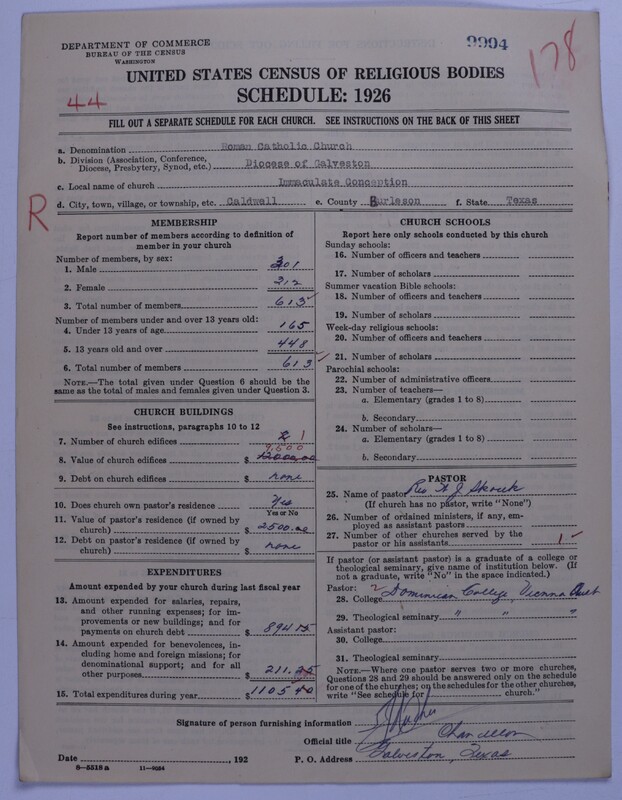 DEPARTMENT OF COMMERCE
BUREAU OF THE CENSUS
WASHINGTON
9994
178
UNITED STATES CENSUS OF RELIGIOUS BODIES
SCHEDULE: 1926
44
FILL OUT A SEPARATE SCHEDULE FOR EACH CHURCH. SEE INSTRUCTIONS ON THE BACK OF THIS SHEET
a. Denomination Roman Catholic Church
b. Division (Association, Conference, Diocese, Presbytery, Synod, etc.) Diocese of Galveston
c. Local name of church Immaculate Conception
d. City, town, village, or township, etc. Caldwell e. County Burleson f. State Texas
R
MEMBERSHIP
Report number of members according to definition of
member in your church
Number of members, by sex:
1. Male 301
2. Female 312
3. Total number of members 613
Number of members under and over 13 years old:
4. Under 13 years of age 165
5. 13 years old and over 448
6. Total number of members 613
NOTE.—The total given under Question 6 should be
same as the total of males and females given under Question 3.
CHURCH BUILDINGS
See instructions, paragraphs 10 to 12
7. Number of church edifices 1
9,600
8. Value of church edifices $ 12000.00
9. Debt on church edifices $ none
10. Does church own pastor's residence? Yes
Yes or No
11. Value of pastor's residence (if owned by
church) $ 2500.00
12. Debt on pastor's residence (if owned by
church) $ none
EXPENDITURES
Amount expended by your church during last fiscal year
13. Amount expended for salaries, repairs,
and other running expenses; for im-
provements or new buildings; and for
payments on church debt $ 894 15
14. Amount expended for benevolences, in-
cluding home and foreign missions; for
denominational support; and for all
other purposes $ 211.25
15. Total expenditures during year $ 1105 40
CHURCH SCHOOLS
Report here only schools conducted by this church
Sunday schools:
16. Number of officers and teachers
17. Number of scholars
Summer vacation Bible schools:
18. Number of officers and teachers
19. Number of scholars
Week-day religious schools:
20. Number of officers and teachers
21. Number of scholars
Parochial schools:
22. Number of administrative officers
23. Number of teachers—
a. Elementary (grades 1 to 8)
b. Secondary
24. Number of scholars—
a. Elementary (grades 1 to 8)
b. Secondary
PASTOR
25. Name of pastor Rev
(If church has no pastor, write "None")
26. Number of ordained ministers, if any, em-
ployed as assistant pastors
27. Number of other churches served by the
pastor or his assistants 1
If pastor (or assistant pastor) is a graduate of a college or
theological seminary, give name of institution below. (If
not a graduate, write "No" in the space indicated.)
Pastor:
28. College Dominican College, Vienna
29. Theological seminary " " "
Assistant pastor:
30. College
31. Theological seminary
NOTE.—Where one pastor serves two or more churches,
Questions 28 and 29 should be answered only on the schedule
for one of the churches; on the schedules for the other churches,
write "See schedule for church."
Signature of person furnishing information
Official title Chancellor
Date , 192 P. O. Address Galveston, Texas
8—5518 a 11—9554